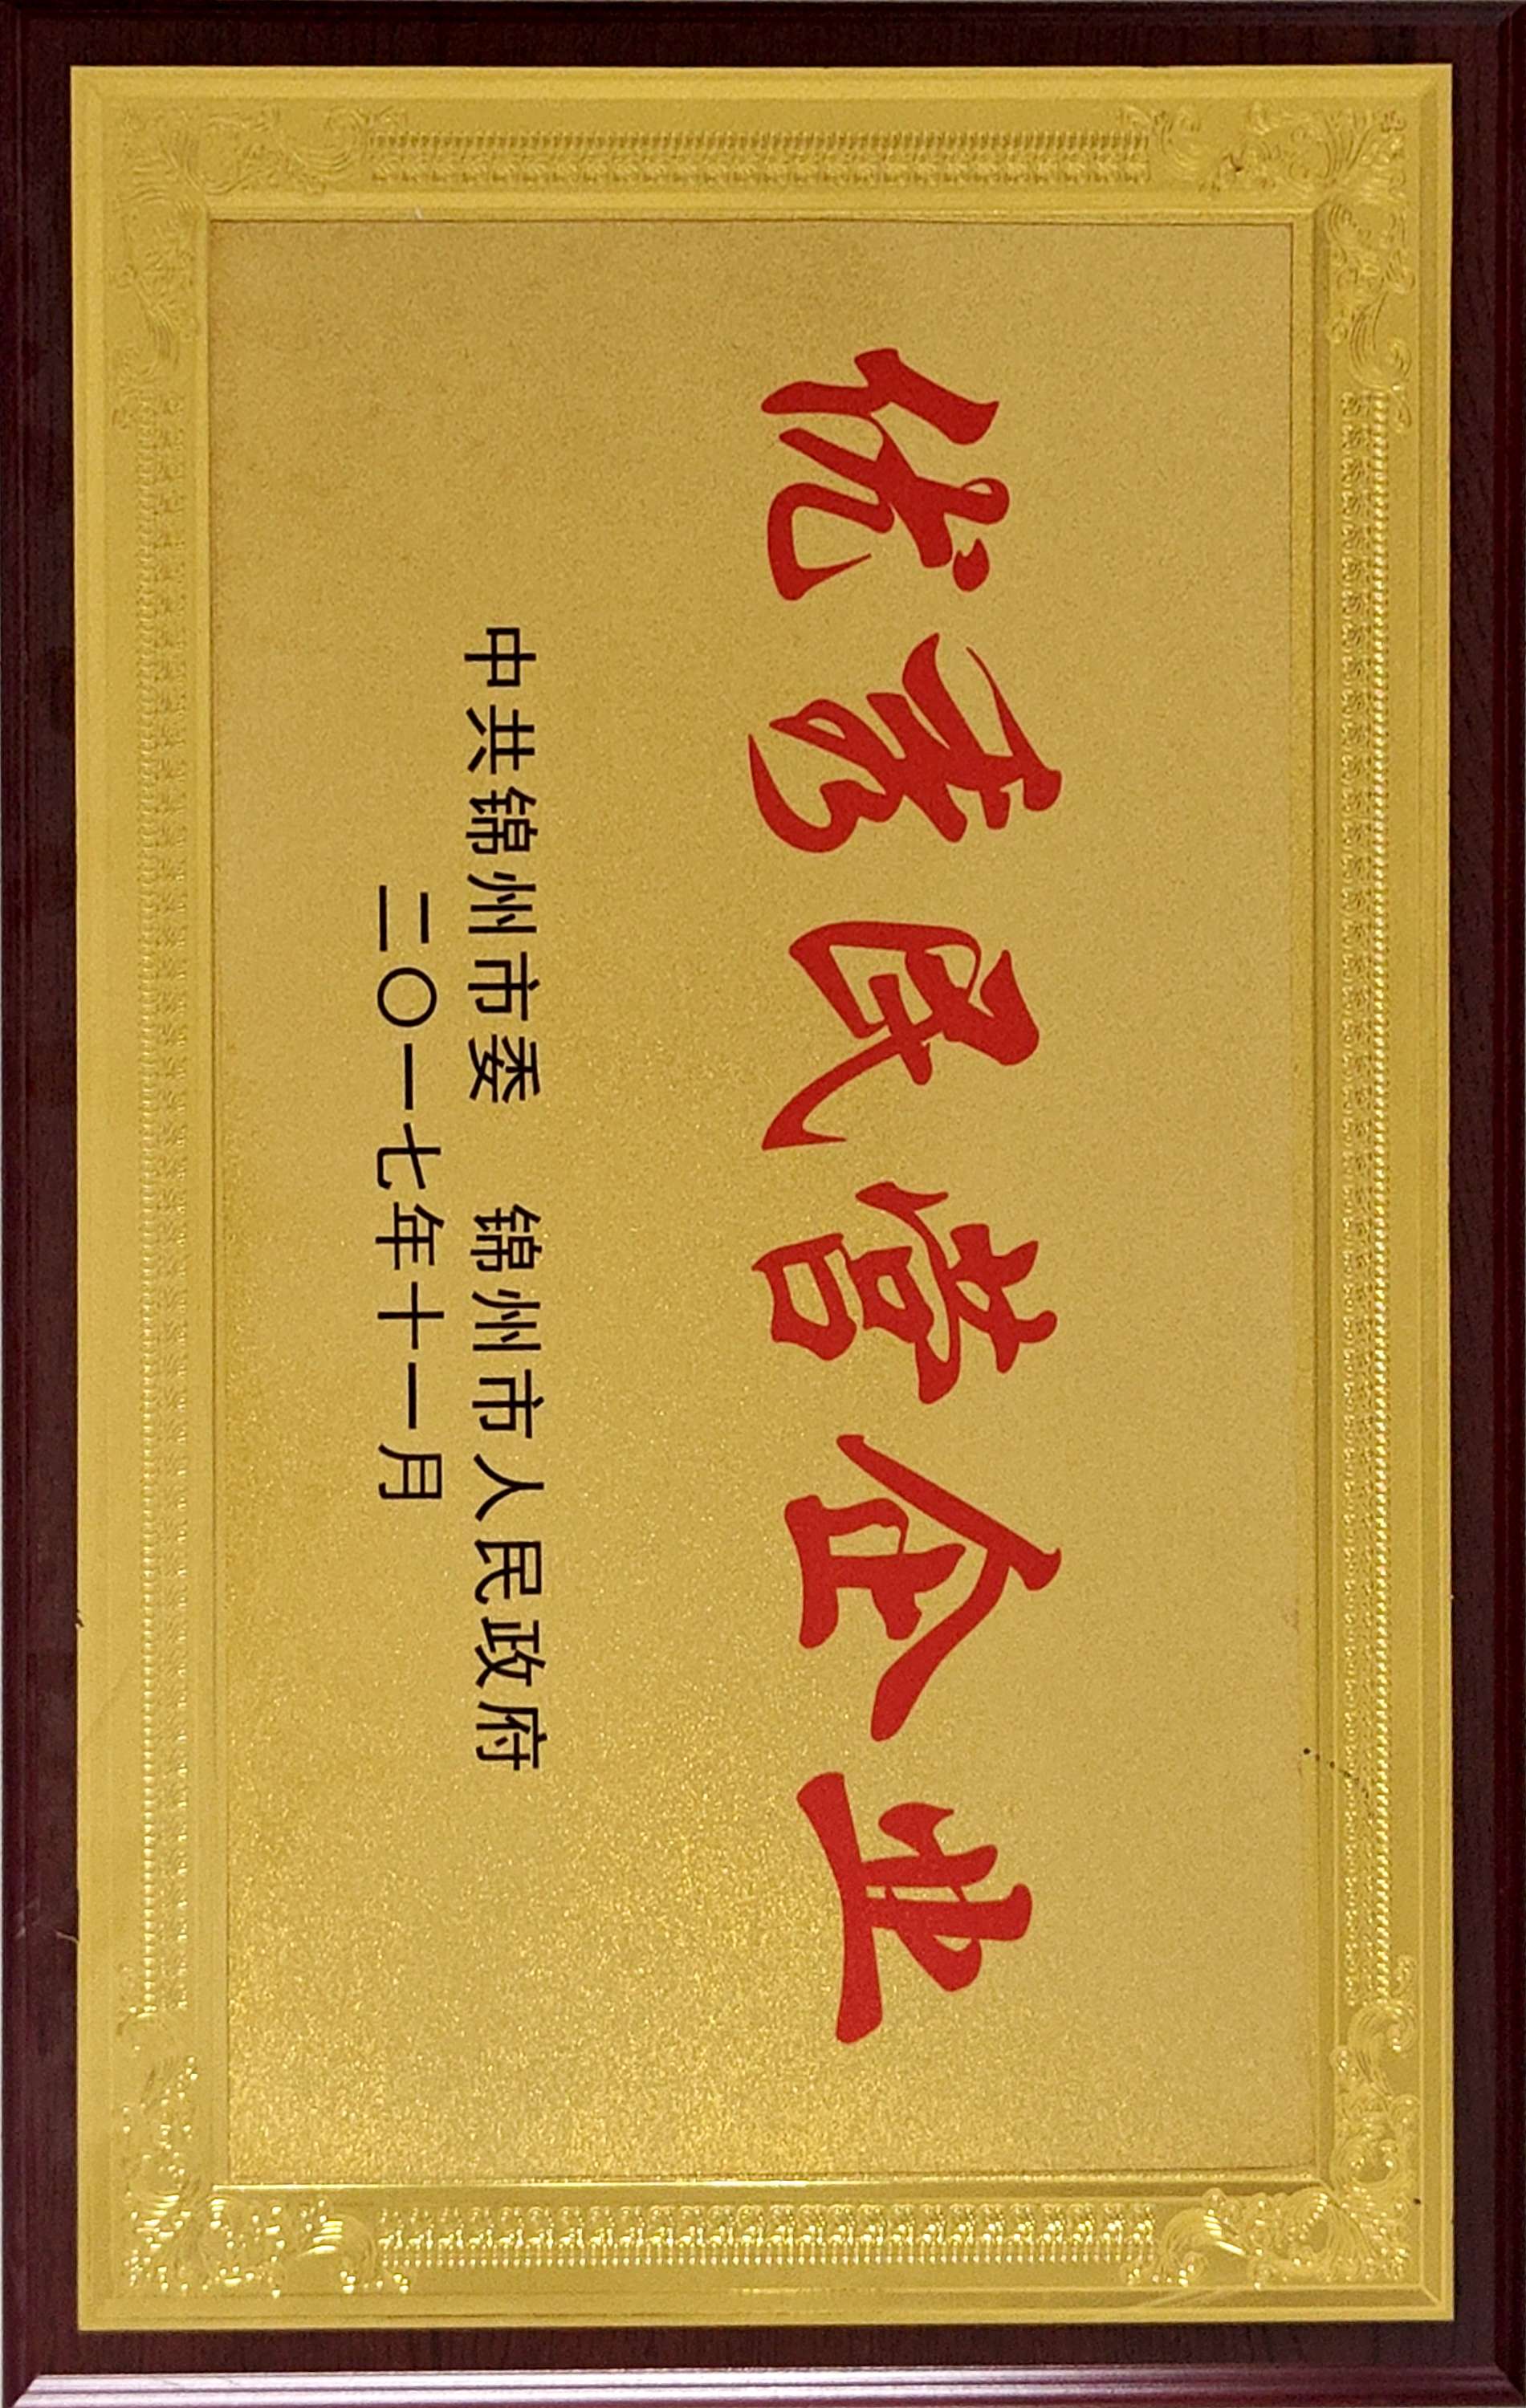 优秀民营企业
中共锦州市委　锦州市人民政府
二〇一七年十一月